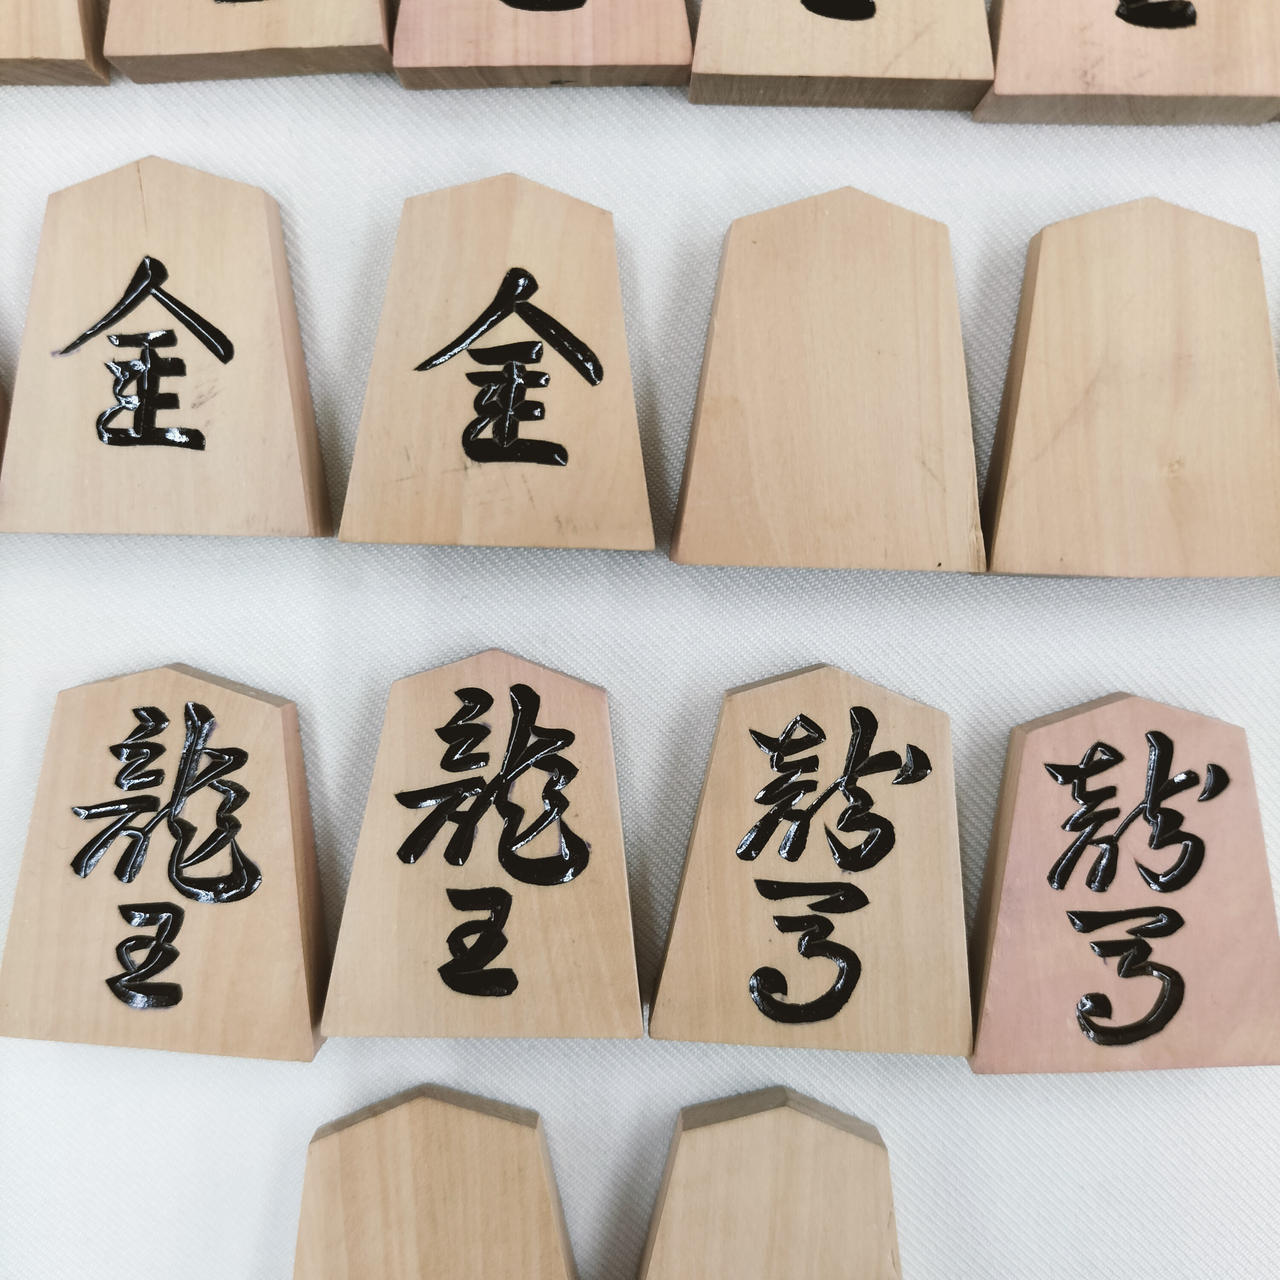 金
金
龍
王
龍
王
龍
馬
龍
馬